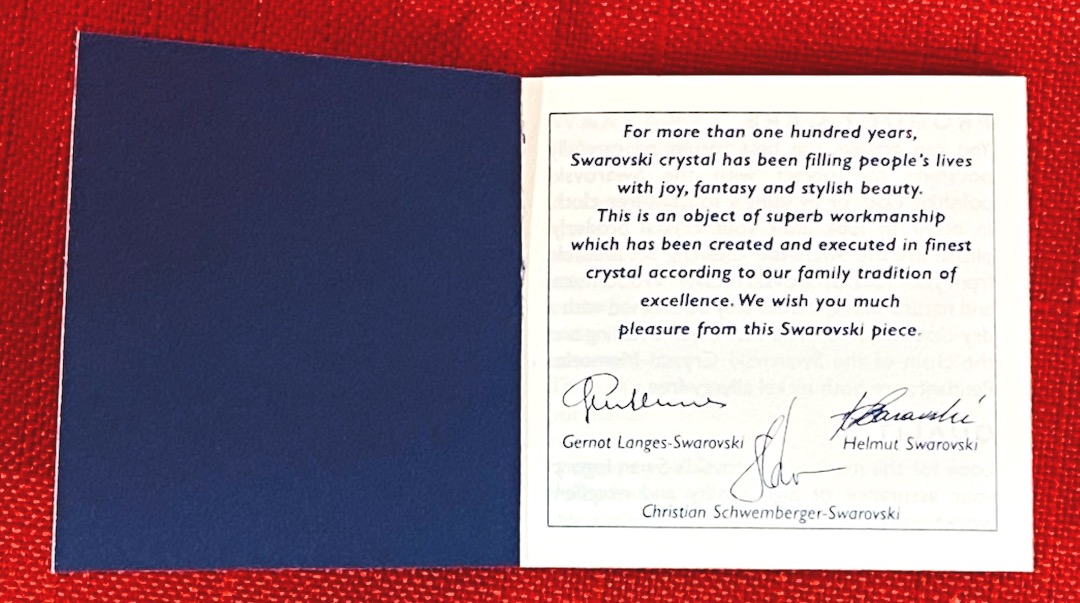 For more than one hundred years,
Swarovski crystal has been filling people's lives
with joy, fantasy and stylish beauty.
This is an object of superb workmanship
which has been created and executed in finest
crystal according to our family tradition of
excellence. We wish you much
pleasure from this Swarovski piece.
Gernot Langes-Swarovski
Helmut Swarovski
Christian Schwemberger-Swarovski